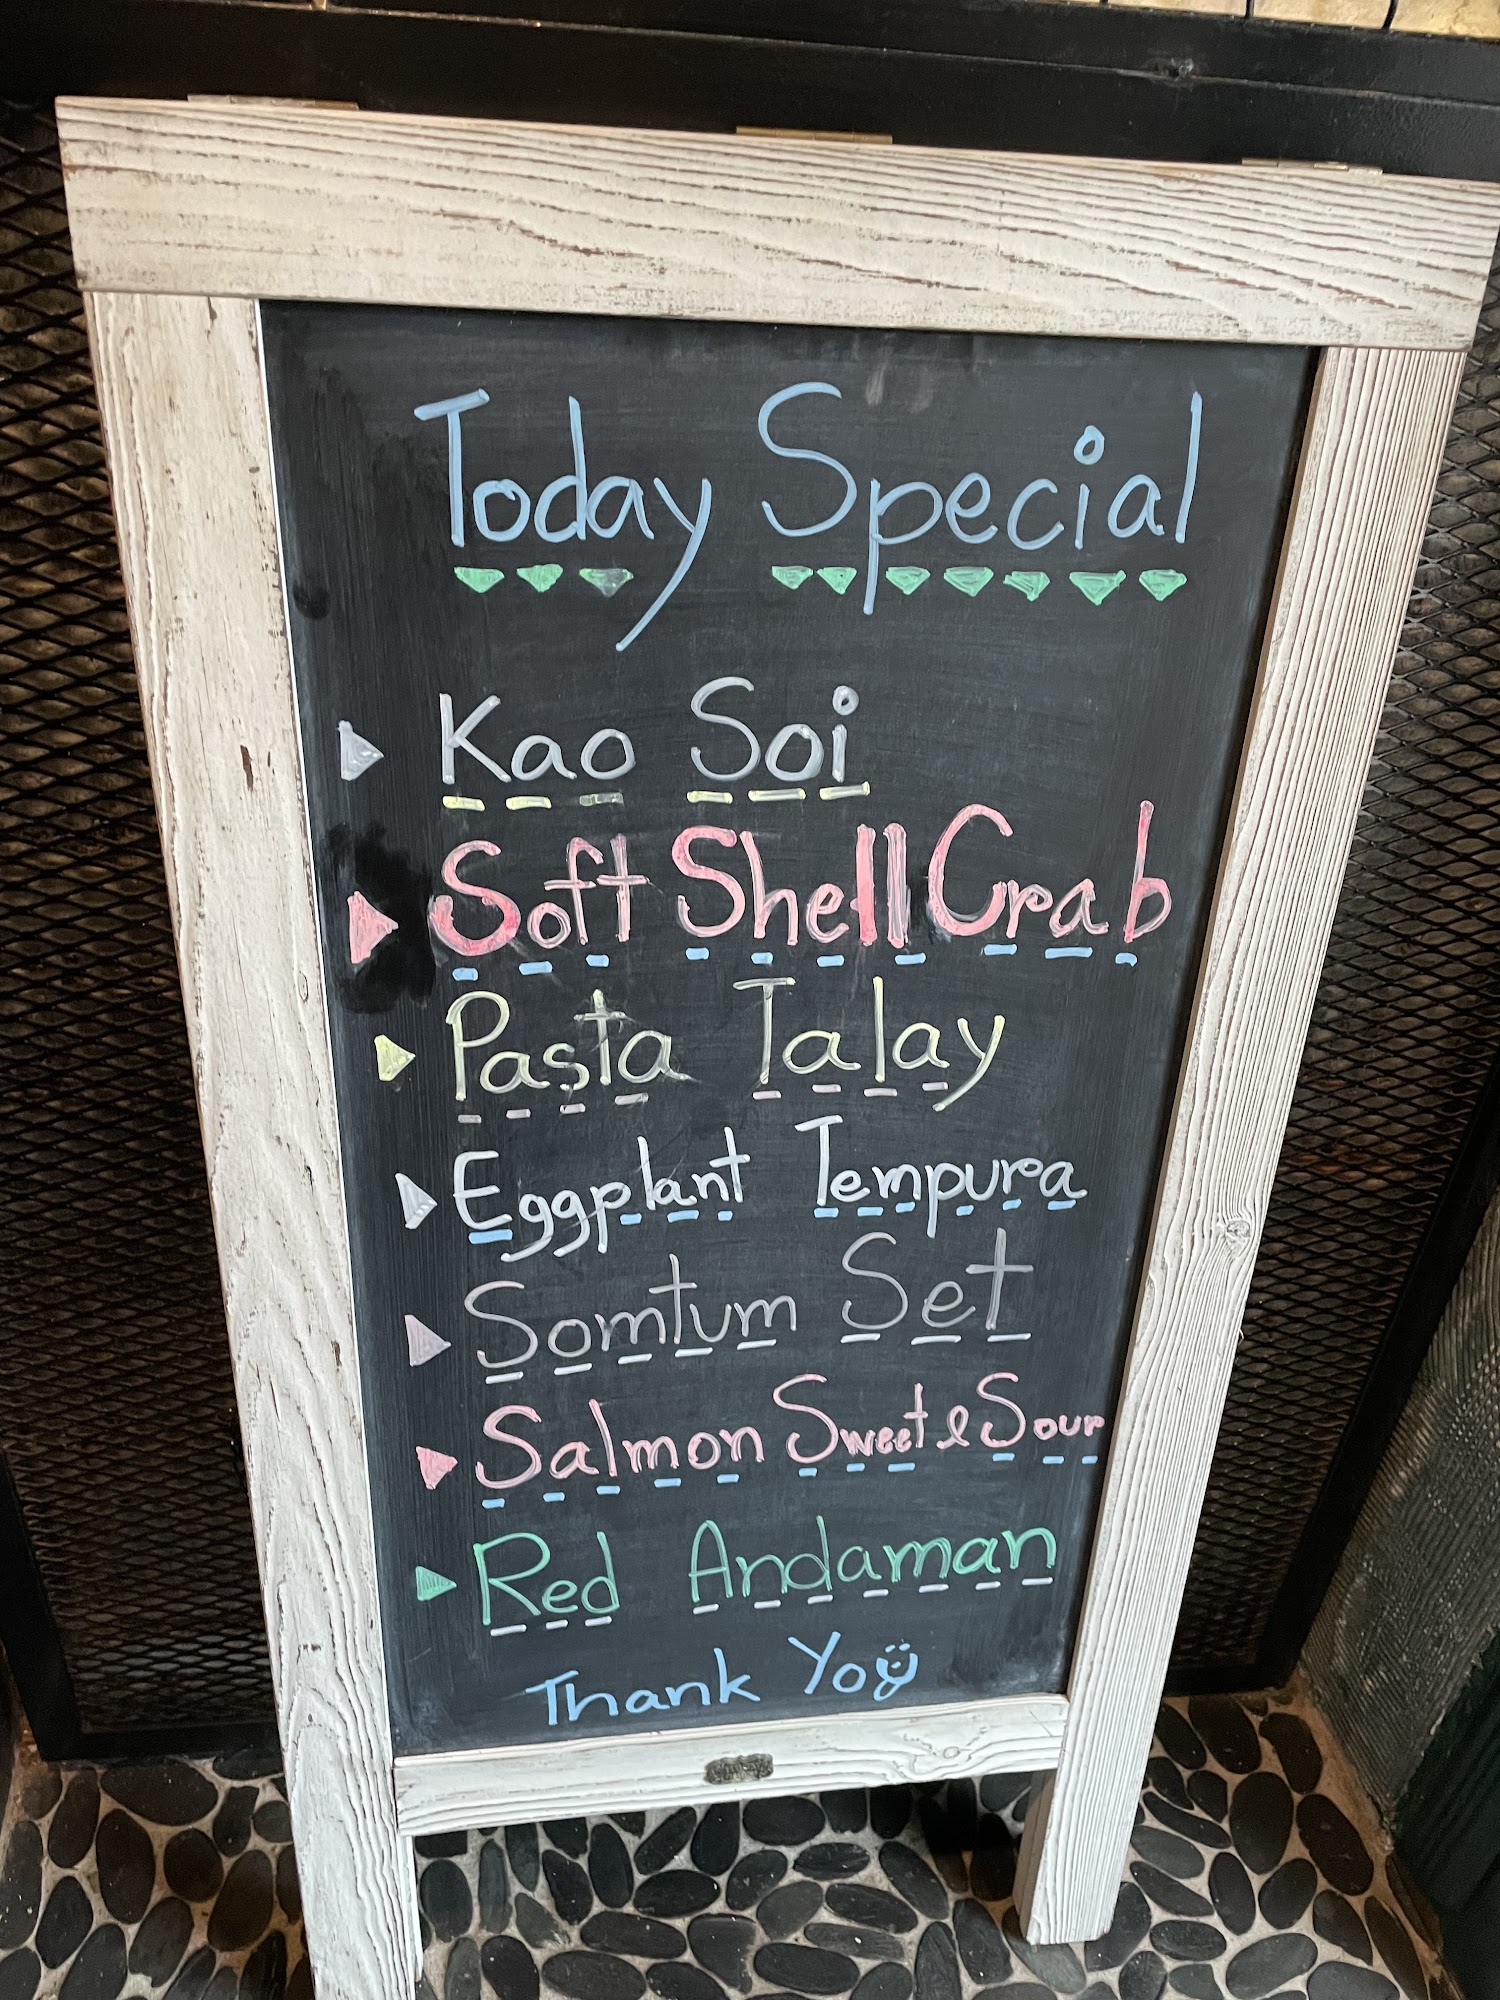 Today Special
Kao Soi
Soft Shell Crab
Pasta Talay
Eggplant Tempura
Somtum Set
Salmon Sweet & Sour
Red Andaman
Thank You